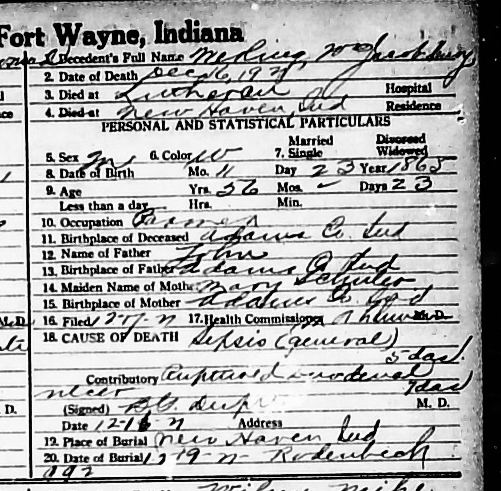 Fort Wayne, Indiana
Decedent's Full Name
2. Date of Death Dec 16, 192
3. Died at Lutheran Hospital
4. Died at New Haven Ind Residence
PERSONAL AND STATISTICAL PARTICULARS
Married Divorced
5. Sex M 6. Color W 7. Single Widowed
8. Date of Birth Mo. 11 Day 23 Year 1865
9. Age Yrs. 56 Mos. - Days 23
Less than a day Hrs. Min.
10. Occupation Farmer
11. Birthplace of Deceased Adams Co. Ind
12. Name of Father John
13. Birthplace of Father Adams Co Ind
14. Maiden Name of Mother Mary
15. Birthplace of Mother Adams Co. Ind
M. D. 16. Filed 17. Health Commissioner M. D.
18. CAUSE OF DEATH Sepsis (general)
5 das.
Contributory Ruptured duodenal
ulcer 7 das
D. (Signed) M. D.
Date Address
19. Place of Burial New Haven Ind
20. Date of Burial Rodenbeck